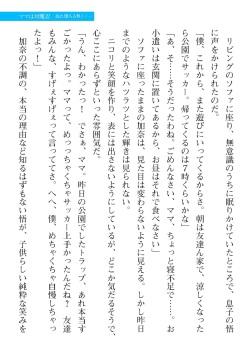 ママは対魔忍
リビングのソファに座り、無意識のうちに眠りかけていたところで、息子の悟
に声をかけられたのだ。
「僕、これから、また遊びにいってくるからさ。朝は友達ん家で、涼しくなった
ら公園でサッカー。帰ってくるのは７時くらいかな」
「あ、そ……そうだったわね。ごめんなさい、ママ、ちょっと寝不足で……。お
小遣いは玄関に置いてあるから、お昼はそれで食べなさい」
ソファに座ったままの加奈は、見た目は変わらないように見える。しかし昨日
までのようなハツラツとした輝きは見られない。
ニコリと笑顔を作り、表には出さないようにしているが、どこか気だるそうで、
心ここにあらずといった雰囲気だ。
「うん、わかったー！　でさぁ、ママ、昨日の公園でしたトラップ、あれ本当す
ごかったよっ。ママって、めっちゃくちゃサッカー上手かったんだね？　友達
もみんな、すげぇすげぇって言っててさ、へへ、僕、めちゃくちゃ自慢しちゃっ
たよっ！」
加奈の不調の、本当の理由など知るはずもない悟が、子供らしい純粋な笑みを